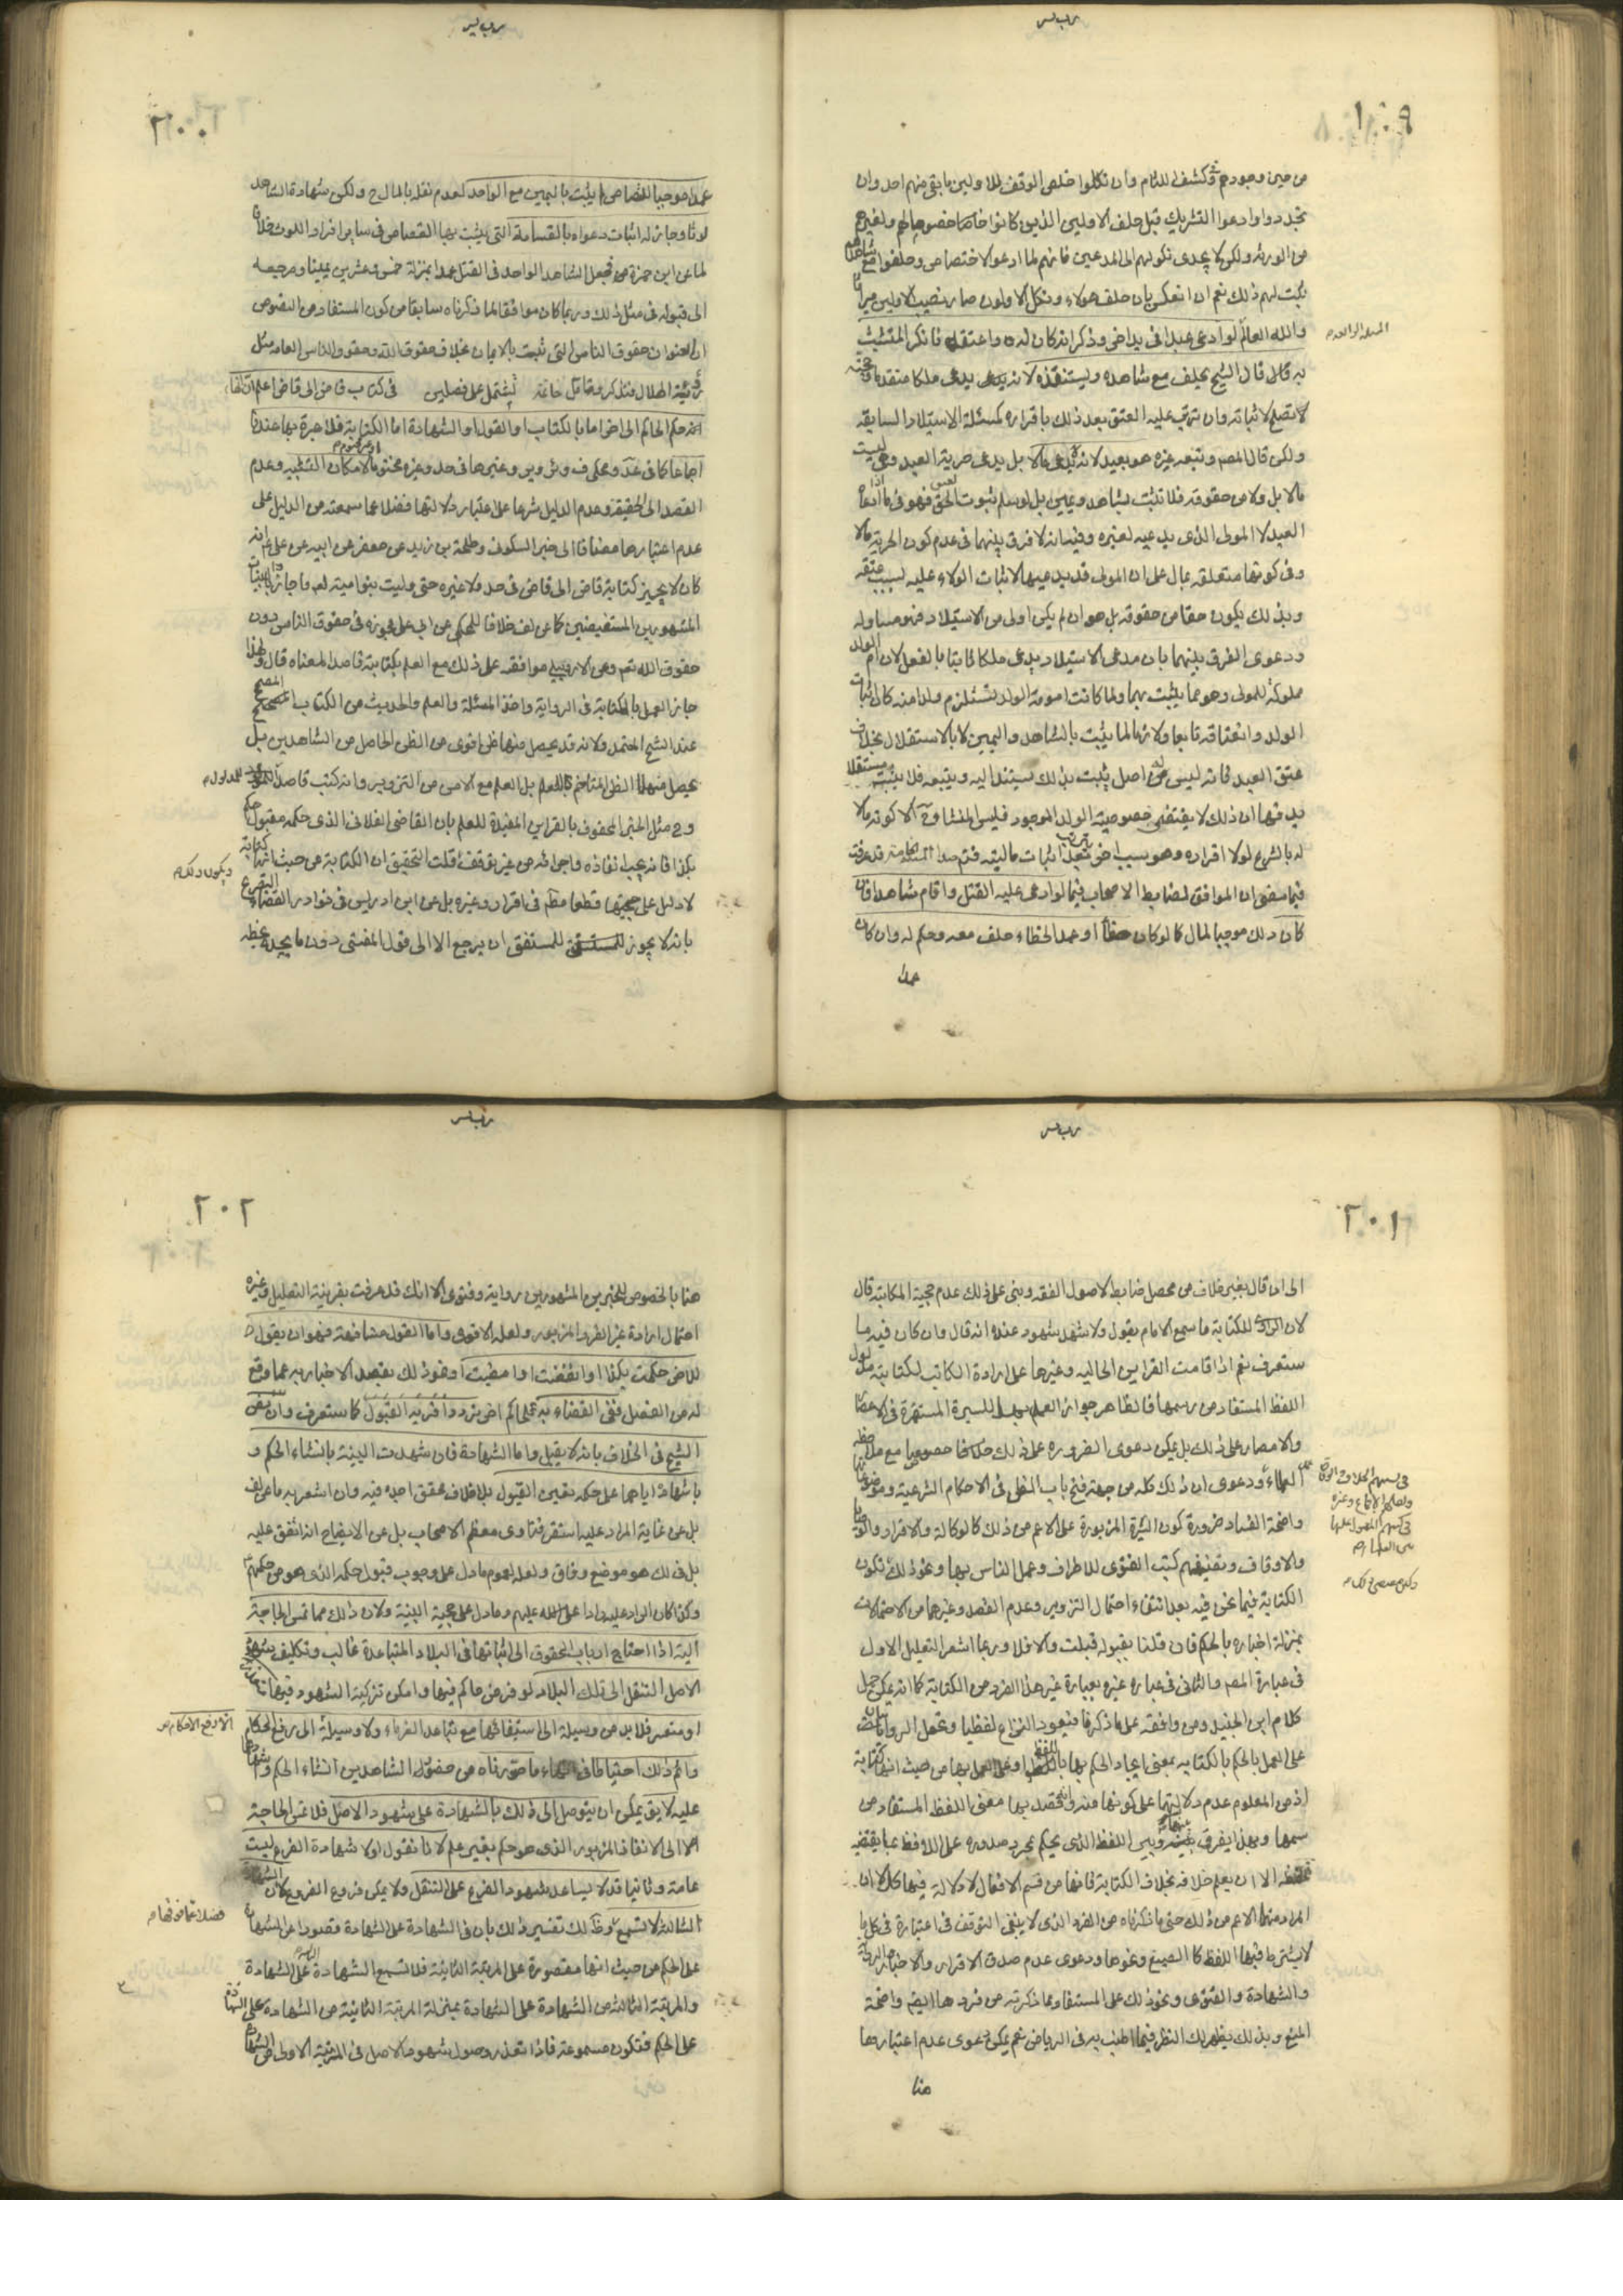 ١٠٩
من حين وجودهم وكشف للتام وان نكلوا خلص الوقف للاولين ما بقى منهم احد وان
تجددوا وادعوا التشريك قبل حلف الاولين الذين كانوا خاصا خصوما لهم ولغيرهم
من الورثة ولكن لا يجدى نكولهم الى المدعين فانهم لما ادعوا لاختصاص وحلفوا مع شاهدهم
ثبت لهم ذلك نعم ان انعكس بان حلف هولاء ونكل الاولون صار نصيب الاولين ميراثا
والله العالم لو ادعى عبدا فى يد اخر وذكر انه كان له واعتقه فانكر المتشبث
به قال قال الشيخ يحلف مع شاهده ويستنقذه لانه يدعى ملكا متقدما وحجته
لا تصلح لاثباته وان ترتب عليه العتق بعد ذلك باقراره كمسئلة الاستيلاد السابقه
ولكن قال المصم وتبعه غيره هو بعيد لانه لا يدعى مالا بل يدعى حرية العبد وهى ليست
مالا بل ولا من حقوقه فلا تثبت بشاهد ويمين بل لو سلم ثبوت الحق فهو فى ما ادعاه
العبد لا المولى الذى يدعيه لغيره وفيه انه لا فرق بينهما فى عدم كون الحرية مالا
وفى كونها متعلقه بمال على ان المولى قد يدعيها لاثبات الولاء عليه لسبب عتقه
وبذلك يكون حقا من حقوقه بل هو ان لم يكن اولى من الاستيلاد فهو مساو له
ودعوى الفرق بينهما بان مدعى الاستيلاد يدعى ملكا ثابتا بالفعل لان ام الولد
مملوكة للمولى وهو مما يثبت بهما ولما كانت امومة الولد تستلزم ولدا منه كان اثبات
الولد وانعتاقه تابعا ولازما لما يثبت بالشاهد واليمين لا بالاستقلال بخلاف
عتق العبد فانه ليس له اصل يثبت بذلك يستند اليه ويتبعه فلا يثبت مستقلا
يدفعها ان ذلك لا يقتضى خصوصية الولد الموجود فليس المنشاء ح الا كونه مالا
له بالشرع لولا اقراره وهو سبب اخر بعد اثبات ماليته فتم هذا المسئلة الخامسه قد عرفت
فيما مضى ان الموافق لضابط الاصحاب فيما لو ادعى عليه القتل واقام شاهدا فان
كان ذلك موجبا لمال كما لو كان خطأ او عمد الخطاء حلف معه وحكم له وان كان
عمدا
٢٠٠
عمدا موجبا للقصاص لم يثبت باليمين مع الواحد لعدم نقله بالمال ح ولكن شهادة الشاهد
لوثا وجاز له اثبات دعواه بالقسامة التى يثبت بها القصاص فى ساير افراد اللوث خلافا
لما عن ابن حمزة من جعل الشاهد الواحد فى القتل عمدا بمنزلة خمس وعشرين يمينا ومرجعه
الى قبوله فى مثل ذلك وربما كان موافقا لما ذكرناه سابقا من كون المستفاد من النصوص
ان العنوان حقوق الناس التى تثبت بالايمان بخلاف حقوق الله وحقوق الناس العامه مثل
رؤية الهلال فتذكر وتامل خاتمة تشتمل على فصلين فى كتاب قاض الى قاض اعلم ان انفاذ
اخر حكم الحاكم الى اخر اما بالكتاب او القول او الشهادة اما الكتابة فلا عبرة بها عندنا
اجماعا كما فى عد ومحكى ف وئر وير وغيرها فى حد وغيره مختوما لامكان التشبيه وعدم
القصد الى الحقيقة وعدم الدليل شرعا على اعتبار دلالتها فضلا عما سمعته من الدليل على
عدم اعتبارها مضافا الى خبر السكونى وطلحة بن زيد عن جعفر عن ابيه عن على ع انه
كان لا يجيز كتابة قاض الى قاض فى حد ولا غيره حتى وليت بنو امية فاجازوا بالبينات
المشهورين المستفيضين كما عن لف خلافا للمحكى عن ابى على فجوزه فى حقوق الناس دون
حقوق الله تعم وعن الاردبيلى موافقه على ذلك مع العلم بكتابته قاصدا لمعناه قال ولهذا
جاز العمل بالمكاتبة فى الرواية واخذ المسئلة والعلم والحديث من الكتاب المصحح
عند الشيخ المعتمد ولانه قد يحصل منها ظن اقوى من الظن الحاصل من الشاهدين بل
يحصل منها الظن المتاخم للعلم بل العلم مع الامن من التزوير وانه كتب قاصدا للمدلول
وح مثل الخبر المحفوف بالقراين المفيدة للعلم بان القاضى الفلانى الذى حكمه مقبول حكم
بكذا فانه يجب انفاذه واجرائه من غير توقف قلت التحقيق ان الكتابة من حيث انها كتابة
لا دليل على حجيتها قطعا مظم فى اقرار وغيره بل عن ابن ادريس فى نوادر القضاء التصريح
بانه لا يجوز للمستفتى ان يرجع الا الى قول المفتى دون ما يجده بخطه
٢٠١
الى ان قال بغير خلاف من محصل ضابط لاصول الفقه وبنى على ذلك عدم حجية المكاتبة قال
لان الراوى للكتابة ما سمع الامام يقول ولا شهد شهود عنده انه قال وان كان فيه ما
ستعرف نعم اذا قامت القراين الحاليه وغيرها على ارادة الكاتب لكتابته مدلول
اللفظ المستفاد من رسمها فالظاهر جواز العمل بها للسيرة المستمرة فى الاعصار
والامصار على ذلك بل يمكن دعوى الضرورة على ذلك خصوصا مع ملاحظة
العلماء ودعوى ان ذلك كله من جهة فتح باب الظن فى الاحكام الشرعية وموضوعاتها
واضحة الفساد ضرورة كون السيرة المزبورة على الاعم من ذلك كالوكالة والاقرار والوصايا
والاوقاف وتصنيفهم كتب الفتوى للاطراف وعمل الناس بها ونحو ذلك فتكون
الكتابة فيما نحن فيه بعد انتفاء احتمال التزوير وعدم القصد وغيرهما من الاحتمالات
بمنزلة اخباره بالحكم فان قلنا بقبوله قبلت والا فلا وربما اشعر التعليل الاول
فى عبارة المصم والثانى فى عبارة غيره بعبارة غير هذا الفرد من الكتابة كما انه يمكن حمل
كلام ابن الجنيد ومن وافقه على ما ذكرنا فيعود النزاع لفظيا وتحمل الروايتان
على العمل بالحكم بالكتابه بمعنى ايجاد الحكم بها باللفظ او على العمل بها من حيث انها كتابة
اذ من المعلوم عدم دلالتها على كونها منه والقصد بها معنى اللفظ المستفاد من
رسمها وبهذا يفرق بينها وبين اللفظ الذى يحكم بمجرد صدوره على اللافظ بما يقتضيه
لفظه الا ان يعلم خلافه بخلاف الكتابة فانها من قسم الافعال لا دلالة فيها كل الا ان
المراد منها الاعم من ذلك حتى ما ذكرناه من الفرد الذى لا ينبغى التوقف فى اعتباره فى كل ما
لا يشترط فيها اللفظ كالصيغ ونحوها ودعوى عدم صدق الاقرار والاخبار والرواية
والشهادة والفتوى ونحو ذلك على المستفاد مما ذكرته من فردها ايضم واضحة
المنع وبذلك يظهر لك النظر فيما اطنب به فى الرياض نعم يمكن دعوى عدم اعتبارها
هنا
٢٠٢
هنا بالخصوص للخبرين المشهورين رواية وفتوى الا انك قد عرفت بقرينة التعليل وغيره
احتمال ارادة غير الفرد المزبور ولعله الاقوى واما القول مشافهة فهو ان يقول
للاخر حكمت بكذا او انفذت او امضيت او نحو ذلك بقصد الاخبار به عما وقع
له من الفصل ففى القضاء به تردد اقربه القبول كما ستعرف وان نص
الشيخ فى الخلاف بانه لا يقبل واما الشهادة فان شهدت البينة بانشاء الحكم و
باشهاده اياهما على حكمه تعين القبول بلا خلاف محقق اجده فيه وان اشعر به ما عن لف
بل عن غاية المراد عليه استقر فتاوى معظم الاصحاب بل عن الايضاح انه اتفق عليه
بل فى لك هو موضع وفاق ولعله لعموم ما دل على وجوب قبول حكمه الذى هو من حكمهم
وكذا كان الراد عليه رادا على الله عليهم وما دل على حجية البينة ولان ذلك مما تمس الحاجة
اليه اذا احتاج ارباب الحقوق الى اثباتها فى البلاد المتباعدة غالب وتكليف شهود
الاصل التنقل الى تلك البلاد لو فرض حاكم فيها وامكن تزكية الشهود فيها
او متعسر فلابد من وسيلة الى استيفائها مع تباعد الغرماء ولا وسيلة الى رفع الحكام
واتم ذلك احتياطا ما صورناه من حضور الشاهدين انشاء الحكم واشهادهما
عليه لا يق يمكن ان يتوصل الى ذلك بالشهادة على شهود الاصل فلا تمس الحاجة
الا الى الانفاذ المزبور الذى هو حكم بغير علم لانا نقول اولا شهادة الفرع ليست
عامة وثانيا قد لا يساعد شهود الفرع على التنقل ولا يمكن فروع الفروع لان الشهادة
الثالثة لا تسمع كذلك تفسير ذلك بان فى الشهادة على الشهادة قصورا عن الشهادة
على الحكم من حيث انها مقصورة على المرتبة الثانية فلا تسمع الشهادة على الشهادة
والمرتبة الثالثة من الشهادة على الشهادة بمنزلة المرتبة الثانية من الشهادة على الشهادة
على الحكم فتكون مسموعة فاذا تعذر وصول شهود الاصل فى المرتبة الاولى من الشهادة